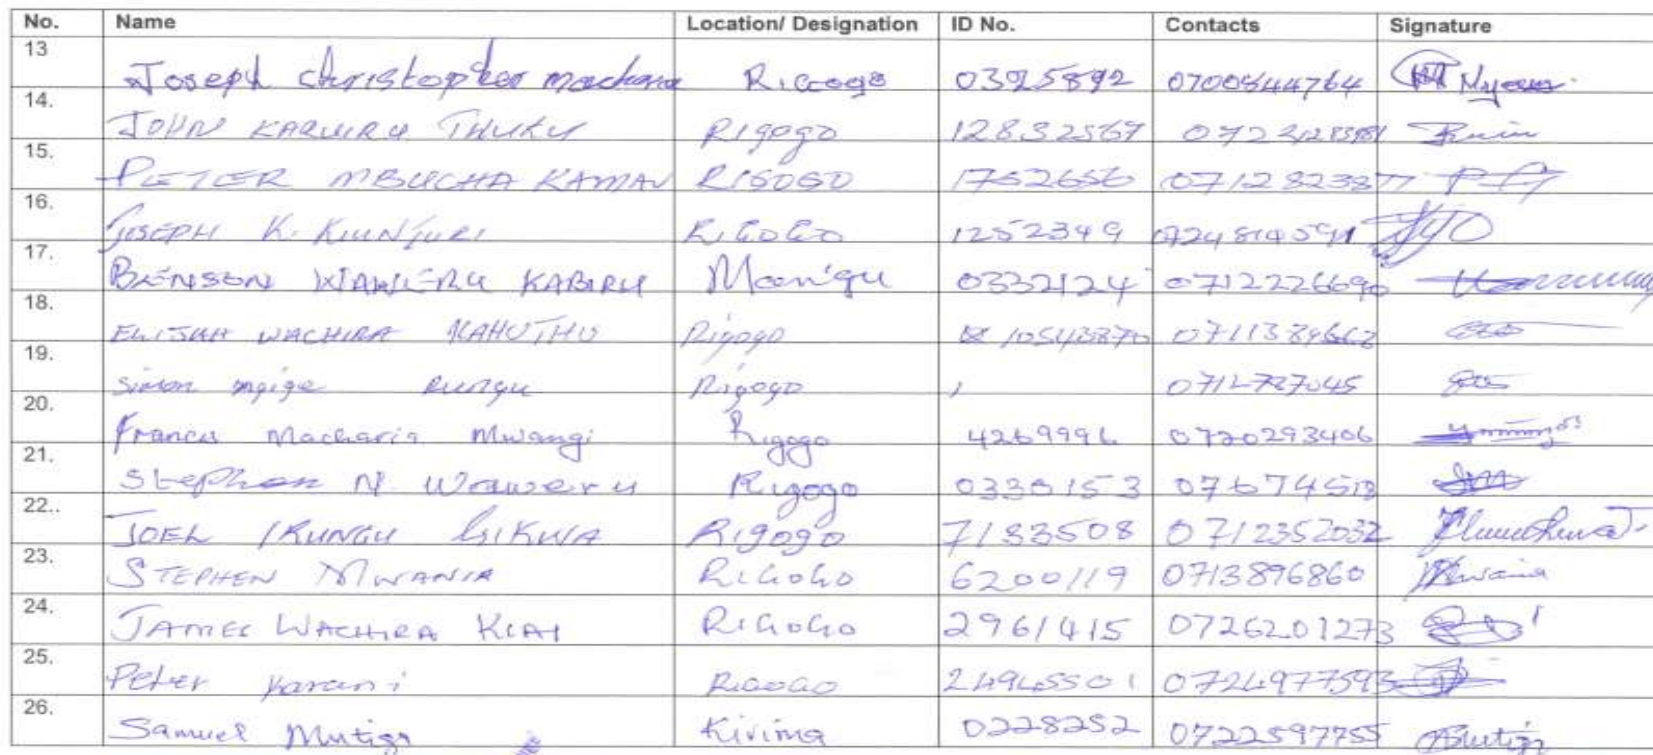 No. Name Location/ Designation ID No. Contacts Signature
13 Joseph Christopher Macharia Rigogo 0325892 0700544764
14. JOHN KARUIRU THUKU Rigogo 12832567
15. PETER MBUCHA KAMAU RIGOGO 1752656 0712823877
16. JOSEPH K. KIUNJURI RIGOGO 1252349 0724814591
17. BENSON WAWERU KABIRU Moorigu 0332124 0712226690
18. ELIJAH WACHIRA KAHUTHU Rigogo 10543870 0711389662
19. Simon ngige Rungu Rigogo 0712727045
20. Francis Macharia Mwangi Rigogo 4269996 0720293406
21. Stephen N. Waweru Rigogo 0330153 07674513
22.. JOEL IRUNGU GIKUIA Rigogo 7133508 0712352032
23. STEPHEN MWANIA RIGOGO 6200119 0713896860
24. JAMES WACHIRA KIAI RIGOGO 2961415 0726201273
25. Peter Karani RIGOGO 24945501 0724977593
26. Samuel Mutiga Kirima 0228252 0722597755